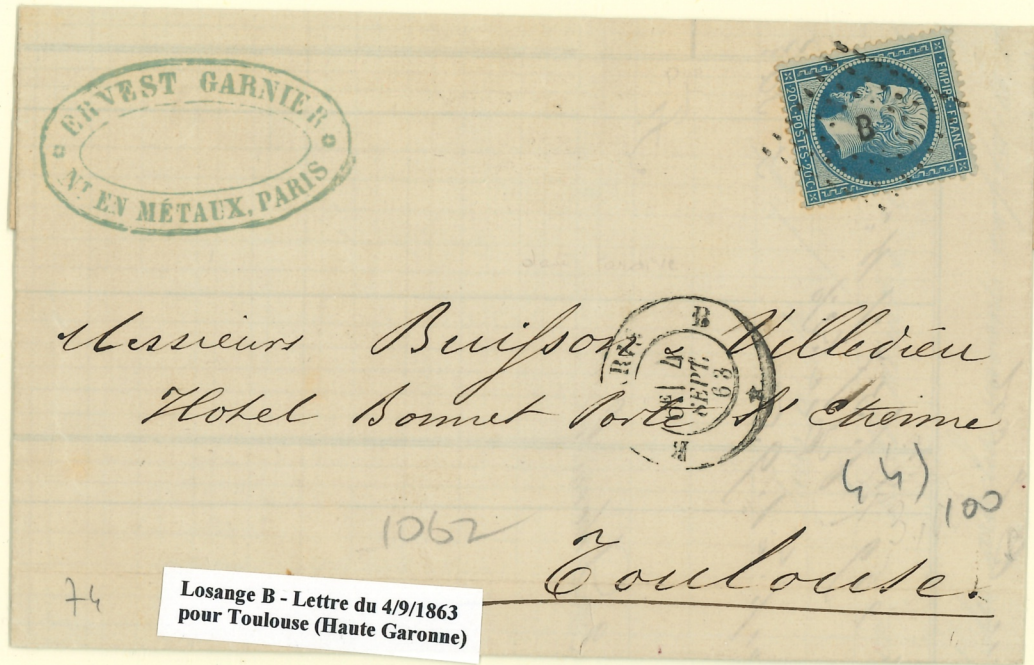 ERNEST GARNIER
Nt EN MÉTAUX, PARIS
EMPIRE FRANC.
20 C. POSTES 20 C.
B
Messieurs Buisson Villedieu
B
SEPT.
63
E
Hotel Bonnet Porte St Etienne
100
1062
Toulouse.
74
Losange B - Lettre du 4/9/1863
pour Toulouse (Haute Garonne)